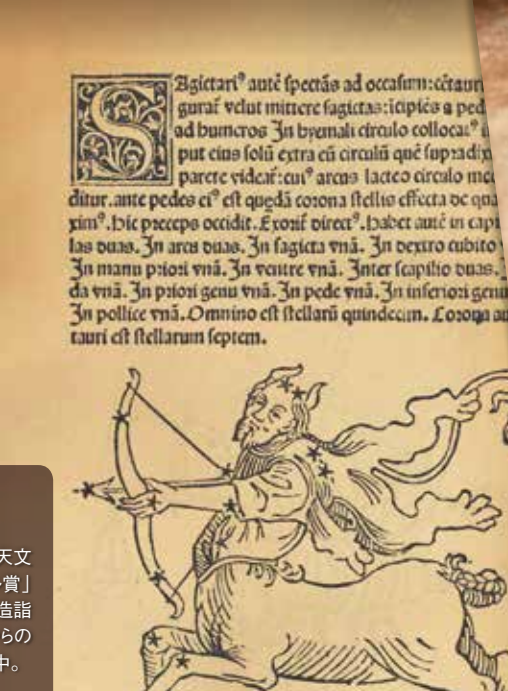 Sagictariꝰ autē ſpectās ad occaſum: cētauri
guraſ velut mittere ſagictas: īcipiēs a ped
ad humeros In hyemali circulo collocaꝰ
put eius ſolū extra eū circulū quē ſupradix
parere videaſ: cuiꝰ arcus lacteo circulo me
ditur. ante pedes eiꝰ eſt quędā corona ſtellis effecta de qua
ximꝰ. hic preceps occidit. Exoriſ directꝰ. habet autē in capi
las duas. In arcu duas. In ſagicta vnā. In dextro cubito
In manu priori vnā. In ventre vnā. Inter ſcapilio duas.
da vnā. In priori genu vnā. In pede vnā. In inferiori genu
In pollice vnā. Omnino eſt ſtellarū quindecim. Corona au
tauri eſt ſtellarum ſeptem.
天文
賞」
造詣
らの
中。